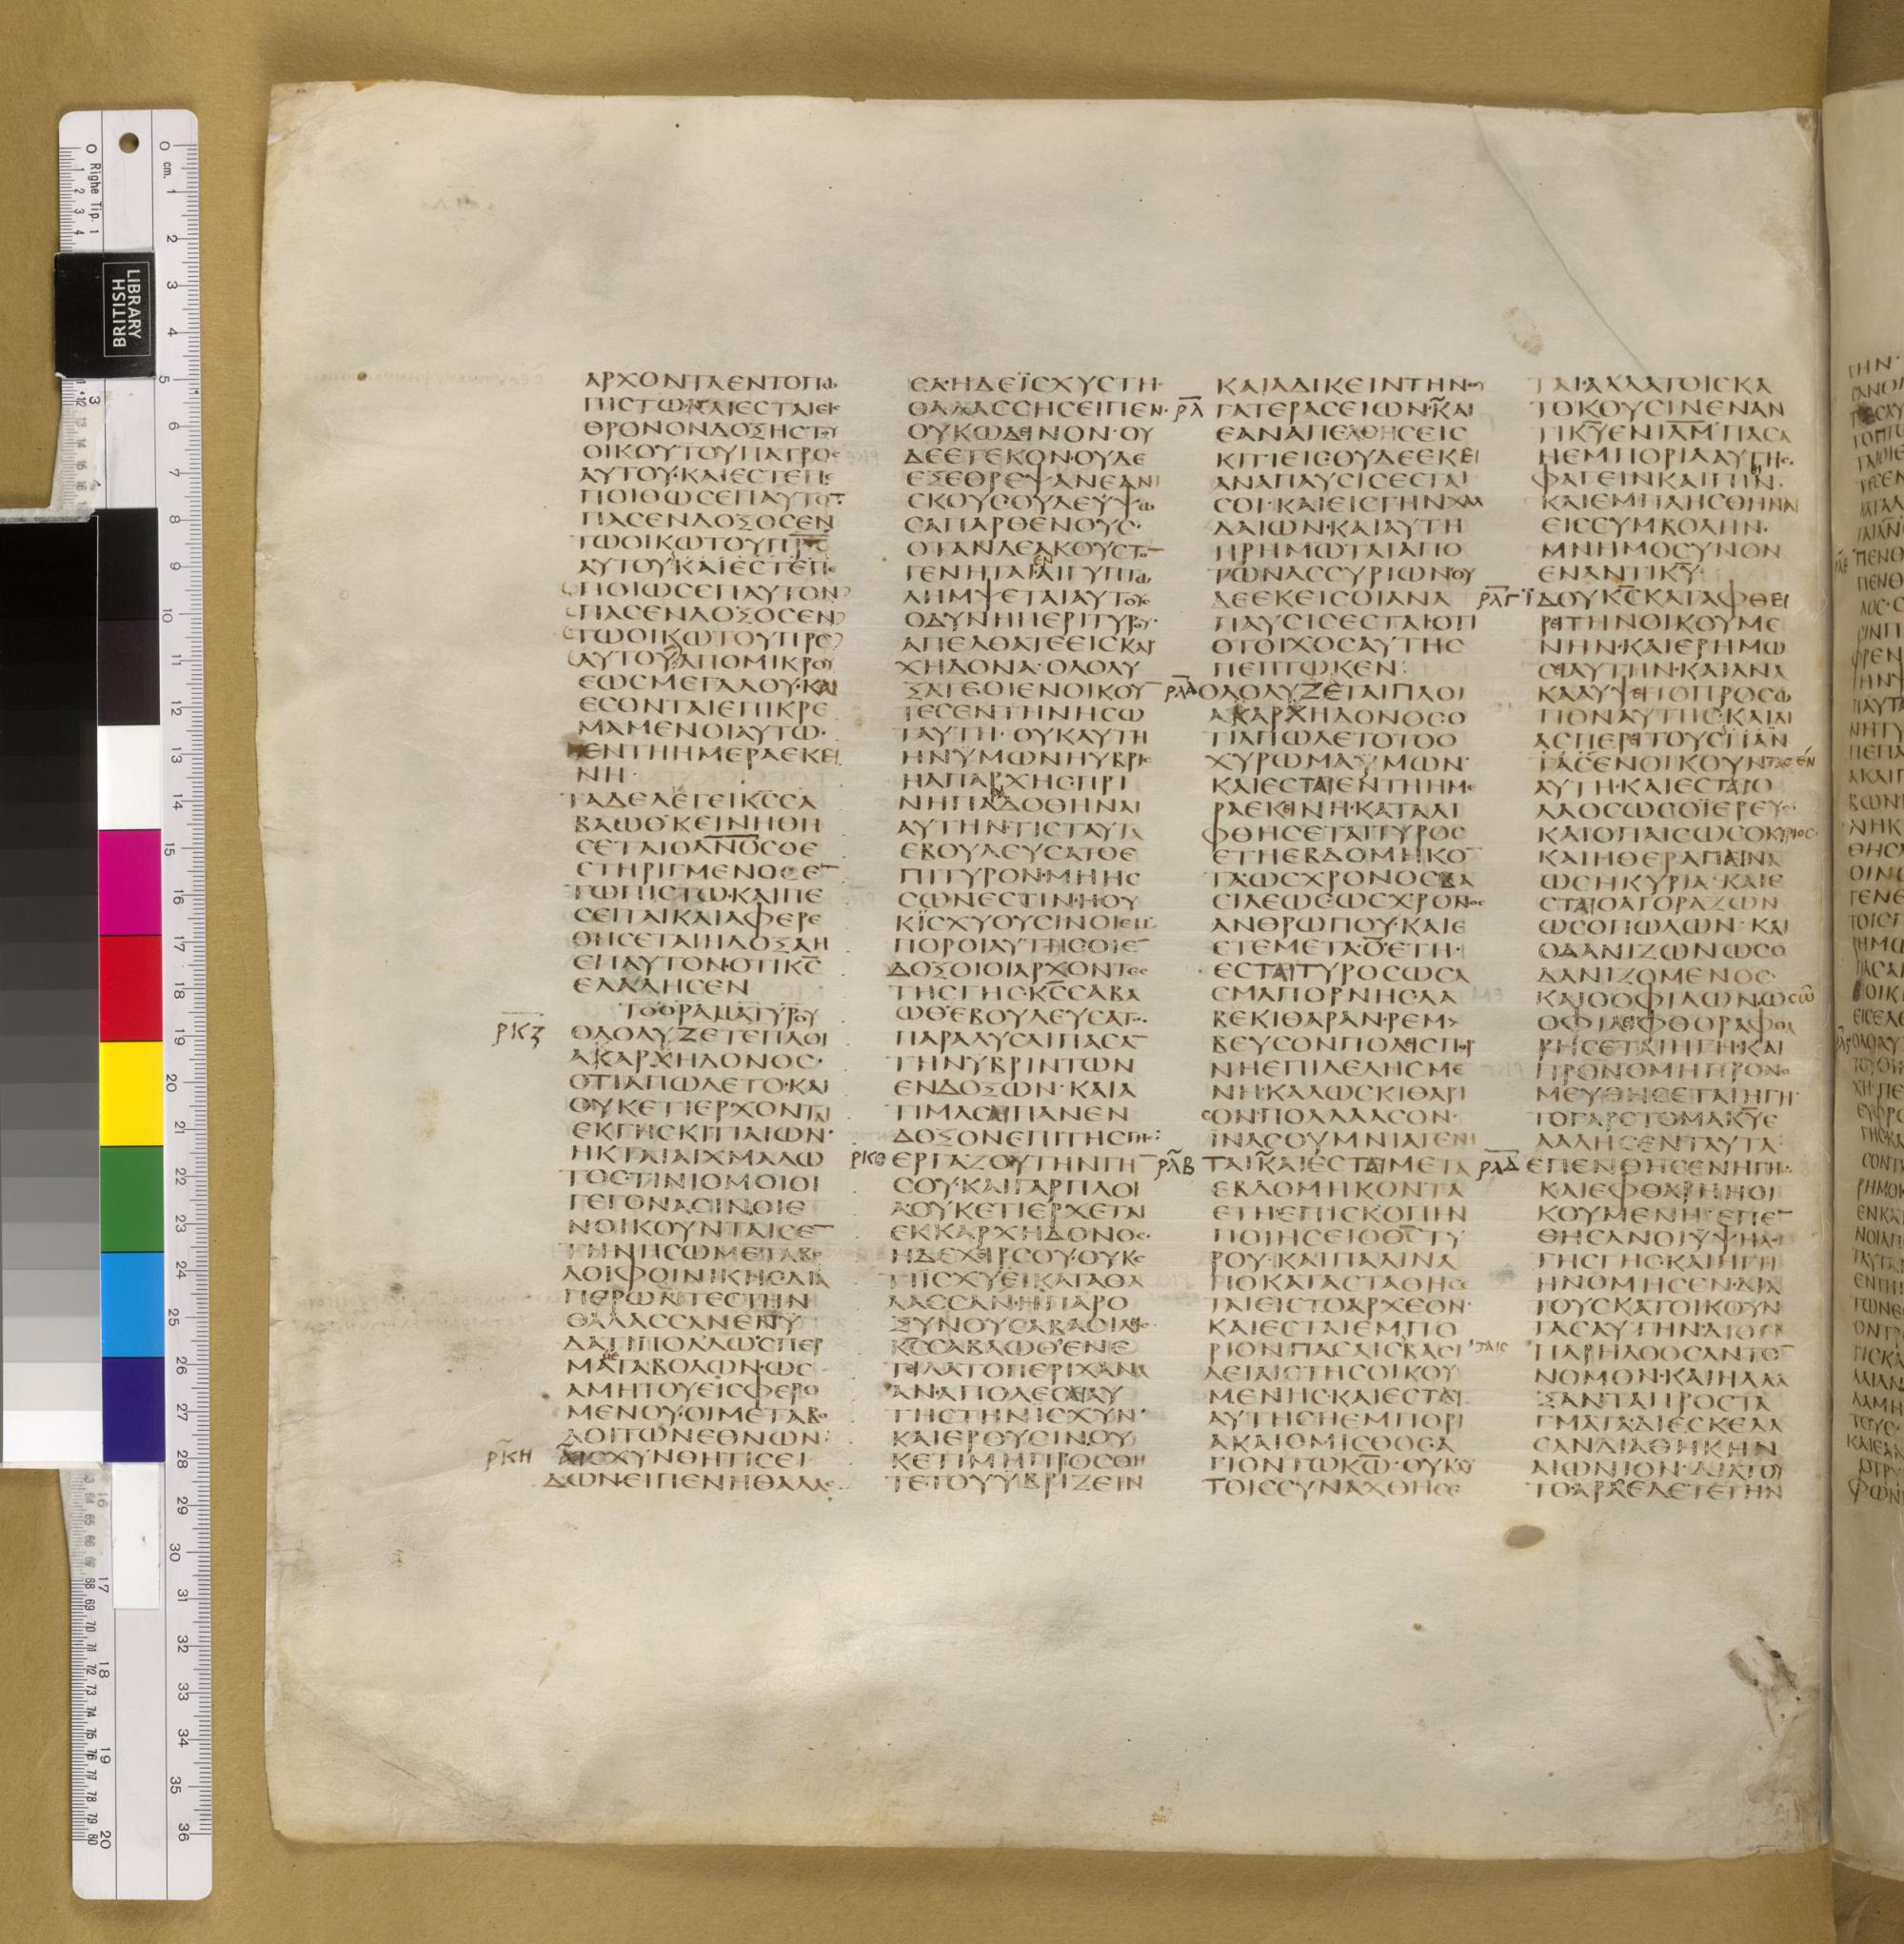 ΑΡΧΟΝΤΑΕΝΤΟΠΩ
ΠΙΣΤΩΚΑΙΕΣΤΑΙΕΙΣ
ΘΡΟΝΟΝΔΟΞΗΣΤΟΥ
ΟΙΚΟΥΤΟΥΠΑΤΡΟΣ
ΑΥΤΟΥ·ΚΑΙΕΣΤΕΠΕ
ΠΟΙΘΩΣΕΠΑΥΤΟΝ
ΠΑΣΕΝΔΟΞΟΣΕΝ
ΤΩΟΙΚΩΤΟΥΠΡΣ
ΑΥΤΟΥΚΑΙΕΣΤΕΠΕ
ΠΟΙΘΩΣΕΠΑΥΤΟΝ
ΠΑΣΕΝΔΟΞΟΣΕΝ
ΤΩΟΙΚΩΤΟΥΠΡΣ
ΑΥΤΟΥΑΠΟΜΙΚΡΟΥ
ΕΩΣΜΕΓΑΛΟΥ·ΚΑΙ
ΕΣΟΝΤΑΙΕΠΙΚΡΕ
ΜΑΜΕΝΟΙΑΥΤΩ·
ΕΝΤΗΗΜΕΡΑΕΚΕΙ
ΝΗ·
ΤΑΔΕΛΕΓΕΙΚΣΣΑ
ΒΑΩΘΚΕΙΝΗΘΗ
ΣΕΤΑΙΟΑΝΟΣΟΕ
ΣΤΗΡΙΓΜΕΝΟΣΕ
ΤΩΠΙΣΤΩ·ΚΑΙΠΕ
ΣΕΙΤΑΙΚΑΙΑΦΕΡΕ
ΘΗΣΕΤΑΙΗΔΟΞΑΗ
ΕΠΑΥΤΟΝ·ΟΤΙΚΣ
ΕΛΑΛΗΣΕΝ
ΤΟΟΡΑΜΑΤΥΡΟΥ
ΡΚΖ ΟΛΟΛΥΖΕΤΕΠΛΟΙ
ΑΚΑΡΧΗΔΟΝΟΣ·
ΟΤΙΑΠΩΛΕΤΟ·ΚΑΙ
ΟΥΚΕΤΙΕΡΧΟΝΤΑΙ
ΕΚΓΗΣΚΙΤΙΑΙΩΝ·
ΗΚΤΑΙΑΙΧΜΑΛΩ
ΤΟΣ·ΤΙΝΙΟΜΟΙΟΙ
ΓΕΓΟΝΑΣΙΝΟΙΕ
ΝΟΙΚΟΥΝΤΑΙΣΕ
ΤΗΝΗΣΩΜΕΤΑΒΟ
ΛΟΙΦΟΙΝΙΚΗΣΔΙΑ
ΠΕΡΩΝΤΕΣΤΗΝ
ΘΑΛΑΣΣΑΝΕΝΥ
ΔΑΤΙΠΟΛΛΩΣΠΕΡ
ΜΑΤΑΒΟΛΩΝ·ΩΣ
ΑΜΗΤΟΥΕΙΣΦΕΡΟ
ΜΕΝΟΥ·ΟΙΜΕΤΑΒΟ
ΛΟΙΤΩΝΕΘΝΩΝ:
ΡΚΗ ΑΙΣΧΥΝΘΗΤΙΣΕΙ
ΔΩΝΕΙΠΕΝΗΘΑΛΑΣ
ΣΑ·ΗΔΕΪΣΧΥΣΤΗ
ΘΑΛΑΣΣΗΣΕΙΠΕΝ·
ΟΥΚΩΔΙΝΟΝ·ΟΥ
ΔΕΕΤΕΚΟΝ·ΟΥΔΕ
ΕΞΕΘΡΕΨΑΝΕΑΝΙ
ΣΚΟΥΣΟΥΔΕΥΨΩ
ΣΑΠΑΡΘΕΝΟΥΣ·
ΟΤΑΝΔΕΑΚΟΥΣΤΟ
ΓΕΝΗΤΑΙΑΙΓΥΠΤΩ
ΛΗΜΨΕΤΑΙΑΥΤΟΥΣ
ΟΔΥΝΗΠΕΡΙΤΥΡΟΥ·
ΑΠΕΛΘΑΤΕΕΙΣΚΑΡ
ΧΗΔΟΝΑ·ΟΛΟΛΥ
ΞΑΤΕΟΙΕΝΟΙΚΟΥ
ΤΕΣΕΝΤΗΝΗΣΩ
ΤΑΥΤΗ·ΟΥΚΑΥΤΗ
ΗΝΫΜΩΝΗΥΒΡΙΣ
ΗΑΠΑΡΧΗΣΠΡΙ
ΝΗΠΑΡΑΔΟΘΗΝΑΙ
ΑΥΤΗΝ·ΤΙΣΤΑΥΤΑ
ΕΒΟΥΛΕΥΣΑΤΟΕ
ΠΙΤΥΡΟΝ·ΜΗΗΣ
ΣΩΝΕΣΤΙΝ·ΗΟΥ
ΚΪΣΧΥΟΥΣΙΝΟΙΕΜ
ΠΟΡΟΙΑΥΤΗΣΟΙΕ
ΔΟΞΟΙΟΙΑΡΧΟΝΤΕΣ
ΤΗΣΓΗΣ·ΚΣΣΑΒΑ
ΩΘΕΒΟΥΛΕΥΣΑΤΟ
ΠΑΡΑΛΥΣΑΙΠΑΣΑ
ΤΗΝΥΒΡΙΝΤΩΝ
ΕΝΔΟΞΩΝ·ΚΑΙΑ
ΤΙΜΑΣΑΙΠΑΝΕΝ
ΔΟΞΟΝΕΠΙΤΗΣΓΗΣ:
ΡΚΘ ΕΡΓΑΖΟΥΤΗΝΓΗ
ΣΟΥ·ΚΑΙΓΑΡΠΛΟΙ
ΑΟΥΚΕΤΙΕΡΧΕΤΑΙ
ΕΚΚΑΡΧΗΔΟΝΟΣ·
ΗΔΕΧΙΡΣΟΥ·ΟΥΚΕ
ΤΙΪΣΧΥΕΙΚΑΤΑΘΑ
ΛΑΣΣΑΝ·ΗΠΑΡΟ
ΞΥΝΟΥΣΑΒΑΣΙΛΕΙΣ·
ΚΣΣΑΒΑΩΘΕΝΕ
ΤΙΛΑΤΟΠΕΡΙΧΑΝΑ
ΑΝ·ΑΠΟΛΕΣΑΙΑΥ
ΤΗΣΤΗΝΙΣΧΥΝ·
ΚΑΙΕΡΟΥΣΙΝ·ΟΥ
ΚΕΤΙΜΗΠΡΟΣΘΗ
ΤΕ·ΤΟΥΥΒΡΙΖΕΙΝ
ΚΑΙΑΔΙΚΕΙΝΤΗΝ
ΡΛ ΓΑΤΕΡΑΣΕΙΩΝ·ΚΑΙ
ΕΑΝΑΠΕΛΘΗΣΕΙΣ
ΚΙΤΙΕΙΣΟΥΔΕΕΚΕΙ
ΑΝΑΠΑΥΣΙΣΕΣΤΑΙ
ΣΟΙ·ΚΑΙΕΙΣΓΗΝΧΑΛ
ΔΑΙΩΝ·ΚΑΙΑΥΤΗ
ΗΡΗΜΩΤΑΙΑΠΟ
ΤΩΝΑΣΣΥΡΙΩΝΟΥ
ΔΕΕΚΕΙΣΟΙΑΝΑ
ΠΑΥΣΙΣΕΣΤΑΙ·ΟΤΙ
ΟΤΟΙΧΟΣΑΥΤΗΣ
ΠΕΠΤΩΚΕΝ:
ΡΛΑ ΟΛΟΛΥΖΕΤΑΙΠΛΟΙ
ΑΚΑΡΧΗΔΟΝΟΣΟ
ΤΙΑΠΩΛΕΤΟΤΟΟ
ΧΥΡΩΜΑΥΜΩΝ·
ΚΑΙΕΣΤΑΙΕΝΤΗΗΜΕ
ΡΑΕΚΙΝΗ·ΚΑΤΑΛΙ
ΦΘΗΣΕΤΑΙΤΥΡΟΣ
ΕΤΗΕΒΔΟΜΗΚΟ
ΤΑΩΣΧΡΟΝΟΣΒΑ
ΣΙΛΕΩΣΩΣΧΡΟΝΟΣ
ΑΝΘΡΩΠΟΥ·ΚΑΙΕ
ΣΤΕΜΕΤΑΟΕΤΗ·
ΕΣΤΑΙΤΥΡΟΣΩΣΑ
ΣΜΑΠΟΡΝΗΣΛΑ
ΒΕΚΙΘΑΡΑΝ·ΡΕΜ>
ΒΕΥΣΟΝΠΟΛΙΣΠΟΡ
ΝΗΕΠΙΛΕΛΗΣΜΕ
ΝΗ·ΚΑΛΩΣΚΙΘΑΡΙ
ΣΟΝ·ΠΟΛΛΑΑΣΟΝ·
ΪΝΑΣΟΥΜΝΙΑΓΕΝΗ
ΡΛΒ ΤΑΙΚΑΙΕΣΤΑΙΜΕΤΑ
ΕΒΔΟΜΗΚΟΝΤΑ
ΕΤΗΕΠΙΣΚΟΠΗΝ
ΠΟΙΗΣΕΙΟΘΣΤΥ
ΡΟΥ·ΚΑΙΠΑΛΙΝΑ
ΠΟΚΑΤΑΣΤΑΘΗΣΕ
ΤΑΙΕΙΣΤΟΑΡΧΕΟΝ·
ΚΑΙΕΣΤΑΙΕΜΠΟ
ΡΙΟΝΠΑΣΑΙΣΒΑΣΙ
ΛΕΙΑΙΣΤΗΣΟΙΚΟΥ
ΜΕΝΗΣ·ΚΑΙΕΣΤΑΙ
ΑΥΤΗΣΗΕΜΠΟΡΙ
ΑΚΑΙΟΜΙΣΘΟΣΑ
ΓΙΟΝΤΩΚΩ·ΟΥΚΟΥ
ΤΟΙΣΣΥΝΑΧΘΗΣΕ
ΤΑΙ·ΑΛΛΑΤΟΙΣΚΑ
ΤΟΚΟΥΣΙΝΕΝΑΝ
ΤΙΚΥΕΝΙΛΗΜΠΑΣΑ
ΗΕΜΠΟΡΙΑΑΥΤΗΣ·
ΦΑΓΕΙΝΚΑΙΠΙΝ·
ΚΑΙΕΜΠΛΗΣΘΗΝΑΙ
ΕΙΣΣΥΜΒΟΛΗΝ·
ΜΝΗΜΟΣΥΝΟΝ
ΕΝΑΝΤΙΚΥ·
ΡΛΓ ΪΔΟΥΚΣΚΑΤΑΦΘΕΙ
ΡΙΤΗΝΟΙΚΟΥΜΕ
ΝΗΝ·ΚΑΙΕΡΗΜΩ
ΣΙΑΥΤΗΝ·ΚΑΙΑΝΑ
ΚΑΛΥΨΙΤΟΠΡΟΣΩ
ΠΟΝΑΥΤΗΣ·ΚΑΙΔΙ
ΑΣΠΕΡΙΤΟΥΣΠΑΝ
ΤΑΣΕΝΟΙΚΟΥΝΤΑΣΕΝ
ΑΥΤΗ·ΚΑΙΕΣΤΑΙΟ
ΛΑΟΣΩΣΟΪΕΡΕΥΣ·
ΚΑΙΟΠΑΙΣΩΣΟΚΥΡΙΟΣ·
ΚΑΙΗΘΕΡΑΠΑΙΝΑ
ΩΣΗΚΥΡΙΑ·ΚΑΙΕ
ΣΤΑΙΟΑΓΟΡΑΖΩΝ
ΩΣΟΠΩΛΩΝ·ΚΑΙ
ΟΔΑΝΙΖΩΝΩΣΟ
ΔΑΝΙΖΟΜΕΝΟΣ·
ΚΑΙΟΟΦΙΛΩΝΩΣΩ
ΟΦΙΛΕΙΦΘΟΡΑΦΘΑ
ΡΗΣΕΤΑΙΗΓΗ·ΚΑΙ
ΠΡΟΝΟΜΗΠΡΟΝΟ
ΜΕΥΘΗΣΕΤΑΙΗΓΗ·
ΤΟΓΑΡΣΤΟΜΑΚΥΕ
ΛΑΛΗΣΕΝΤΑΥΤΑ
ΡΛΔ ΕΠΕΝΘΗΣΕΝΗΓΗ·
ΚΑΙΕΦΘΑΡΗΗΟΙ
ΚΟΥΜΕΝΗ·ΕΠΕ
ΘΗΣΑΝΟΙΫΨΗΛΟΙ
ΤΗΣΓΗΣ·ΚΑΙΗΓΗ
ΗΝΟΜΗΣΕΝ·ΔΙΑ
ΤΟΥΣΚΑΤΟΙΚΟΥΝ
ΤΑΣΑΥΤΗΝ·ΔΙΟΤΙ
ΠΑΡΗΛΘΟΣΑΝΤΟ
ΝΟΜΟΝ·ΚΑΙΗΛΛΑ
ΞΑΝΤΑΠΡΟΣΤΑ
ΓΜΑΤΑ·ΔΙΕΣΚΕΔΑ
ΣΑΝΔΙΑΘΗΚΗΝ
ΑΙΩΝΙΟΝ·ΔΙΑΤΟΥ
ΤΟΑΡΑΕΔΕΤΕΤΗΝ
BRITISH
LIBRARY